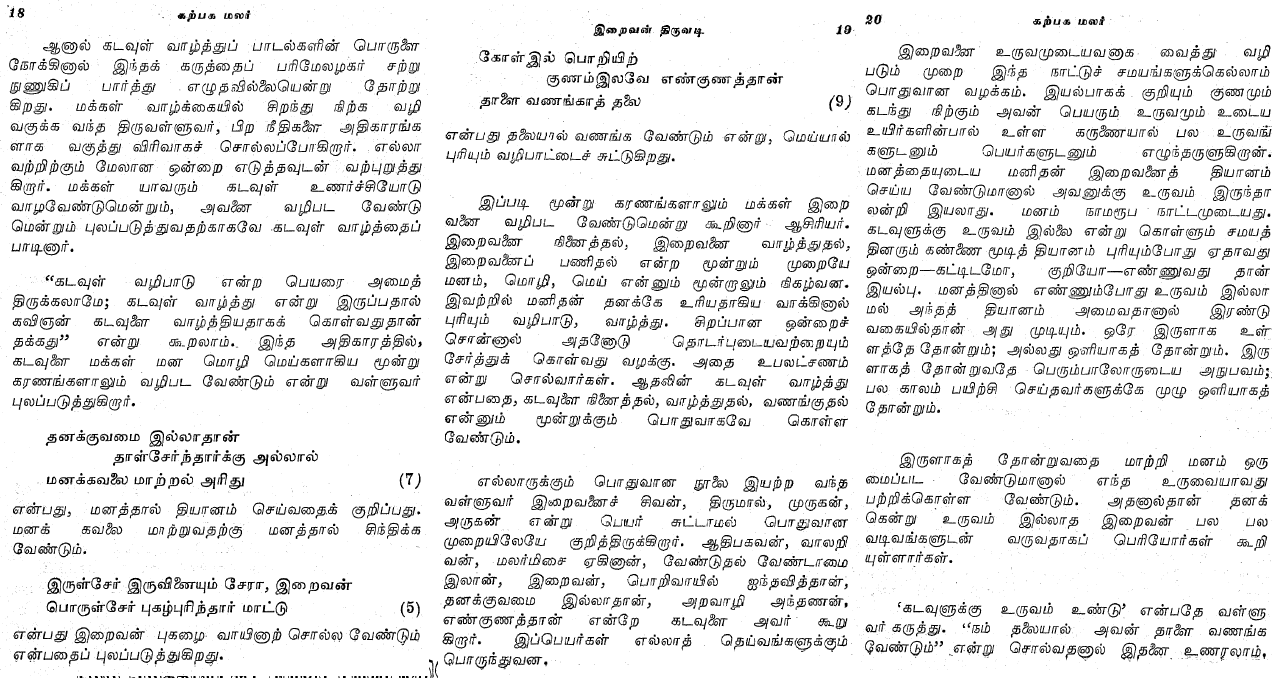 18
கற்பக மலர்
ஆனால் கடவுள் வாழ்த்துப் பாடல்களின் பொருளை
நோக்கினால் இந்தக் கருத்தைப் பரிமேலழகர் சற்று
நுணுகிப் பார்த்து எழுதவில்லையென்று தோற்று
கிறது. மக்கள் வாழ்க்கையில் சிறந்து நிற்க வழி
வகுக்க வந்த திருவள்ளுவர், பிற நீதிகளை அதிகாரங்க
ளாக வகுத்து விரிவாகச் சொல்லப்போகிறார். எல்லா
வற்றிற்கும் மேலான ஒன்றை எடுத்தவுடன் வற்புறுத்து
கிறார். மக்கள் யாவரும் கடவுள் உணர்ச்சியோடு
வாழவேண்டுமென்றும், அவனை வழிபட வேண்டு
மென்றும் புலப்படுத்துவதற்காகவே கடவுள் வாழ்த்தைப்
பாடினார்.
“கடவுள் வழிபாடு என்ற பெயரை அமைத்
திருக்கலாமே; கடவுள் வாழ்த்து என்று இருப்பதால்
கவிஞன் கடவுளை வாழ்த்தியதாகக் கொள்வதுதான்
தக்கது” என்று கூறலாம். இந்த அதிகாரத்தில்,
கடவுளை மக்கள் மன மொழி மெய்களாகிய மூன்று
கரணங்களாலும் வழிபட வேண்டும் என்று வள்ளுவர்
புலப்படுத்துகிறார்.
தனக்குவமை இல்லாதான்
தாள்சேர்ந்தார்க்கு அல்லால்
மனக்கவலை மாற்றல் அரிது (7)
என்பது, மனத்தால் தியானம் செய்வதைக் குறிப்பது.
மனக் கவலை மாற்றுவதற்கு மனத்தால் சிந்திக்க
வேண்டும்.
இருள்சேர் இருவினையும் சேரா, இறைவன்
பொருள்சேர் புகழ்புரிந்தார் மாட்டு (5)
என்பது இறைவன் புகழை வாயினாற் சொல்ல வேண்டும்
என்பதைப் புலப்படுத்துகிறது.
இறைவன் திருவடி
19
கோள்இல் பொறியிற்
குணம்இலவே எண்குணத்தான்
தாளை வணங்காத் தலை (9)
என்பது தலையால் வணங்க வேண்டும் என்று, மெய்யால்
புரியும் வழிபாட்டைச் சுட்டுகிறது.
இப்படி மூன்று கரணங்களாலும் மக்கள் இறை
வனை வழிபட வேண்டுமென்று கூறினார் ஆசிரியர்.
இறைவனை நினைத்தல், இறைவனை வாழ்த்துதல்,
இறைவனைப் பணிதல் என்ற மூன்றும் முறையே
மனம், மொழி, மெய் என்னும் மூன்றாலும் நிகழ்வன.
இவற்றில் மனிதன் தனக்கே உரியதாகிய வாக்கினால்
புரியும் வழிபாடு, வாழ்த்து. சிறப்பான ஒன்றைச்
சொன்னால் அதனோடு தொடர்புடையவற்றையும்
சேர்த்துக் கொள்வது வழக்கு. அதை உபலட்சணம்
என்று சொல்வார்கள். ஆதலின் கடவுள் வாழ்த்து
என்பதை, கடவுளை நினைத்தல், வாழ்த்துதல், வணங்குதல்
என்னும் மூன்றுக்கும் பொதுவாகவே கொள்ள
வேண்டும்.
எல்லாருக்கும் பொதுவான நூலை இயற்ற வந்த
வள்ளுவர் இறைவனைச் சிவன், திருமால், முருகன்,
அருகன் என்று பெயர் சுட்டாமல் பொதுவான
முறையிலேயே குறித்திருக்கிறார். ஆதிபகவன், வாலறி
வன், மலர்மிசை ஏகினான், வேண்டுதல் வேண்டாமை
இலான், இறைவன், பொறிவாயில் ஐந்தவித்தான்,
தனக்குவமை இல்லாதான், அறவாழி அந்தணன்,
எண்குணத்தான் என்றே கடவுளை அவர் கூறு
கிறார். இப்பெயர்கள் எல்லாத் தெய்வங்களுக்கும்
பொருந்துவன.
20
கற்பக மலர்
இறைவனை உருவமுடையவனாக வைத்து வழி
படும் முறை இந்த நாட்டுச் சமயங்களுக்கெல்லாம்
பொதுவான வழக்கம். இயல்பாகக் குறியும் குணமும்
கடந்து நிற்கும் அவன் பெயரும் உருவமும் உடைய
உயிர்களின்பால் உள்ள கருணையால் பல உருவங்
களுடனும் பெயர்களுடனும் எழுந்தருளுகிறான்.
மனத்தையுடைய மனிதன் இறைவனைத் தியானம்
செய்ய வேண்டுமானால் அவனுக்கு உருவம் இருந்தா
லன்றி இயலாது. மனம் நாமரூப நாட்டமுடையது.
கடவுளுக்கு உருவம் இல்லை என்று கொள்ளும் சமயத்
தினரும் கண்ணை மூடித் தியானம் புரியும்போது ஏதாவது
ஒன்றை—கட்டிடமோ, குறியோ—எண்ணுவது தான்
இயல்பு. மனத்தினால் எண்ணும்போது உருவம் இல்லா
மல் அந்தத் தியானம் அமைவதானால் இரண்டு
வகையில்தான் அது முடியும். ஒரே இருளாக உள்
ளத்தே தோன்றும்; அல்லது ஒளியாகத் தோன்றும். இரு
ளாகத் தோன்றுவதே பெரும்பாலோருடைய அநுபவம்;
பல காலம் பயிற்சி செய்தவர்களுக்கே முழு ஒளியாகத்
தோன்றும்.
இருளாகத் தோன்றுவதை மாற்றி மனம் ஒரு
மைப்பட வேண்டுமானால் எந்த உருவையாவது
பற்றிக்கொள்ள வேண்டும். அதனால்தான் தனக்
கென்று உருவம் இல்லாத இறைவன் பல பல
வடிவங்களுடன் வருவதாகப் பெரியோர்கள் கூறி
யுள்ளார்கள்.
‘கடவுளுக்கு உருவம் உண்டு’ என்பதே வள்ளு
வர் கருத்து. “நம் தலையால் அவன் தாளை வணங்க
வேண்டும்” என்று சொல்வதனால் இதனை உணரலாம்.